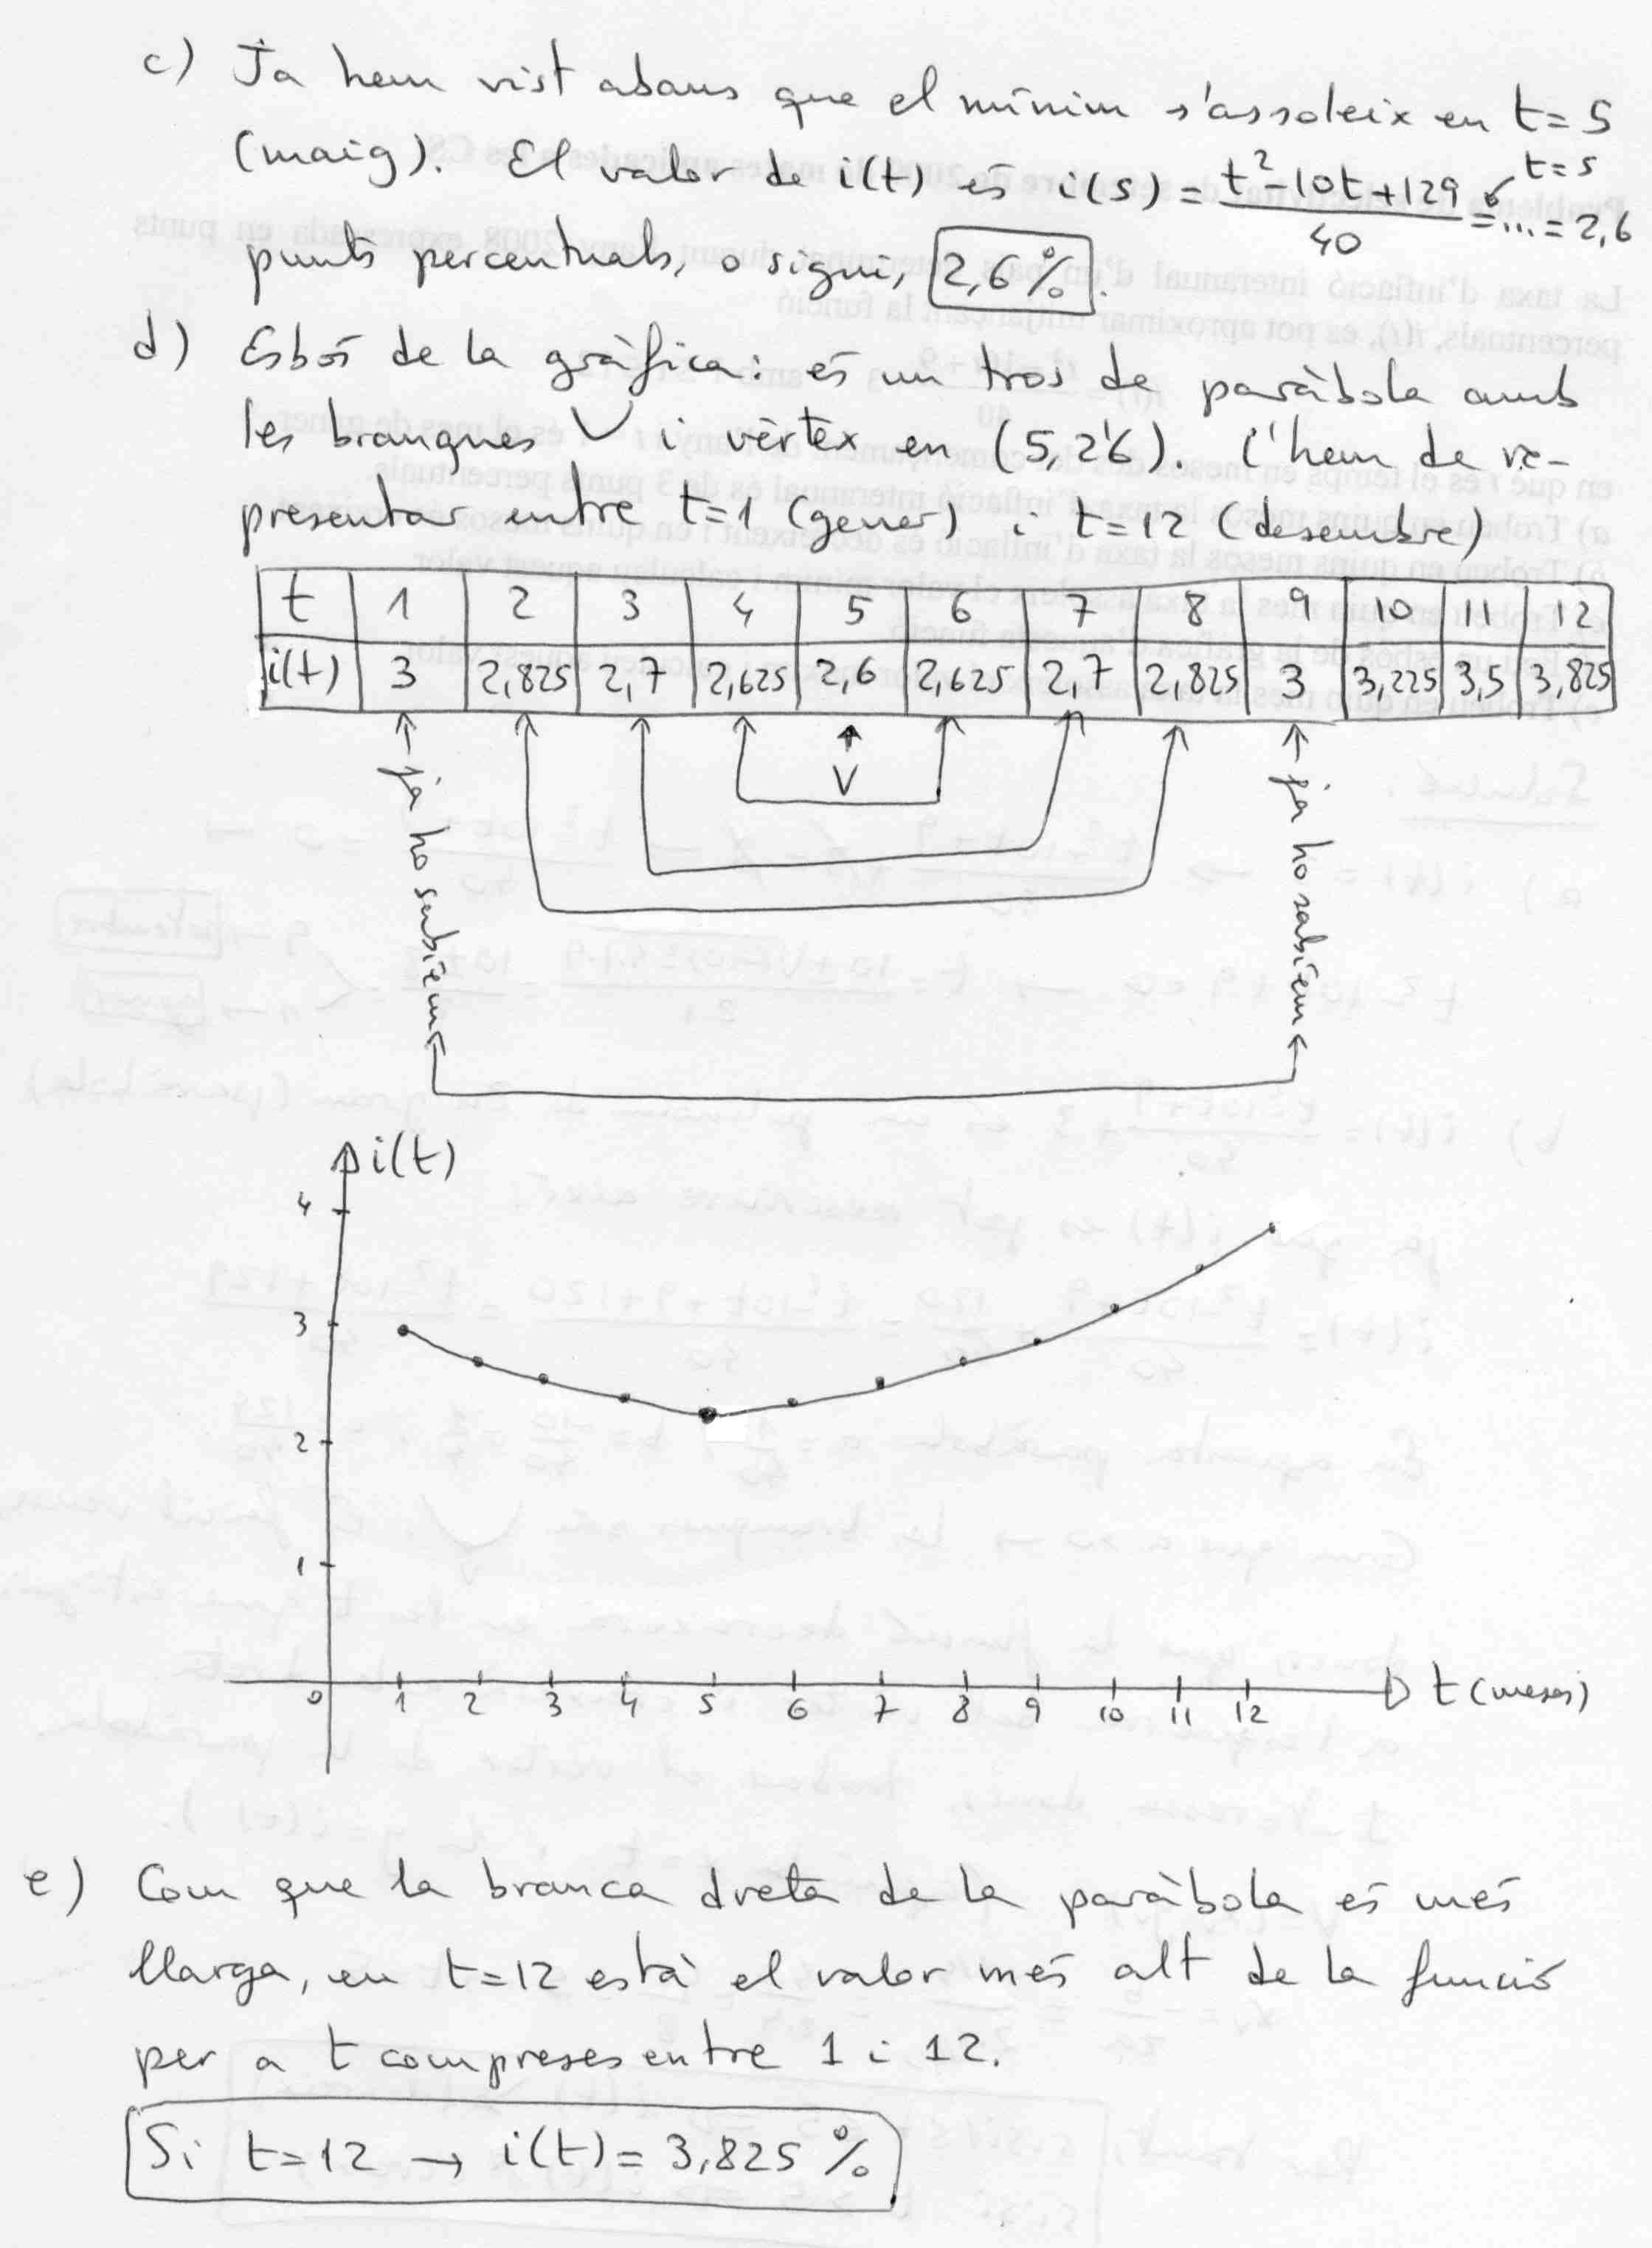 c) Ja hem vist abans que el mínim s'assoleix en t=5
(maig). El valor de i(t) és i(5) = (t²-10t+129)/40 = ... = 2,6
t=5
punts percentuals, o sigui, 2,6%.
d) Esbós de la gràfica: és un tros de paràbola amb
les branques ∪ i vèrtex en (5, 2'6). L'hem de re-
presentar entre t=1 (gener) i t=12 (desembre)
t 1 2 3 4 5 6 7 8 9 10 11 12
i(t) 3 2,825 2,7 2,625 2,6 2,625 2,7 2,825 3 3,225 3,5 3,825
V
ja ho sabíem
ja ho sabíem
i(t)
4
3
2
1
0 1 2 3 4 5 6 7 8 9 10 11 12 t (mesos)
e) Com que la branca dreta de la paràbola és més
llarga, en t=12 està el valor més alt de la funció
per a t compreses entre 1 i 12.
Si t=12 → i(t) = 3,825 %